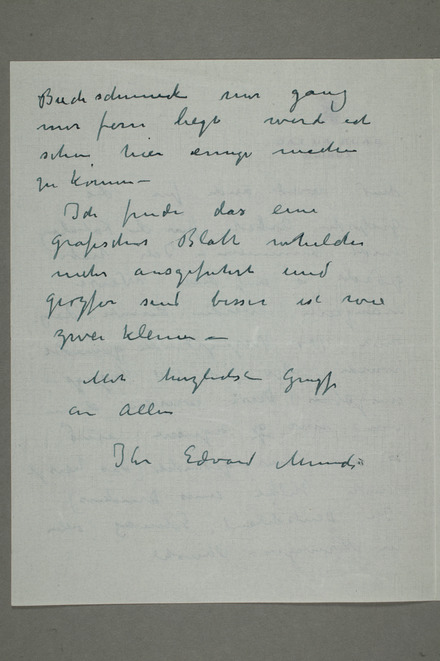 Buchschmuck mir ganz
mir fern liegt werd ich
schon hier einige machen
zu können —
Ich finde das eine
grafisches Blatt
mehr ausgeführt und
grosser sind besser ist wie
zwei kleine —
Mit herzlichsten Gruss
an Allen
Ihr Edvard Munch